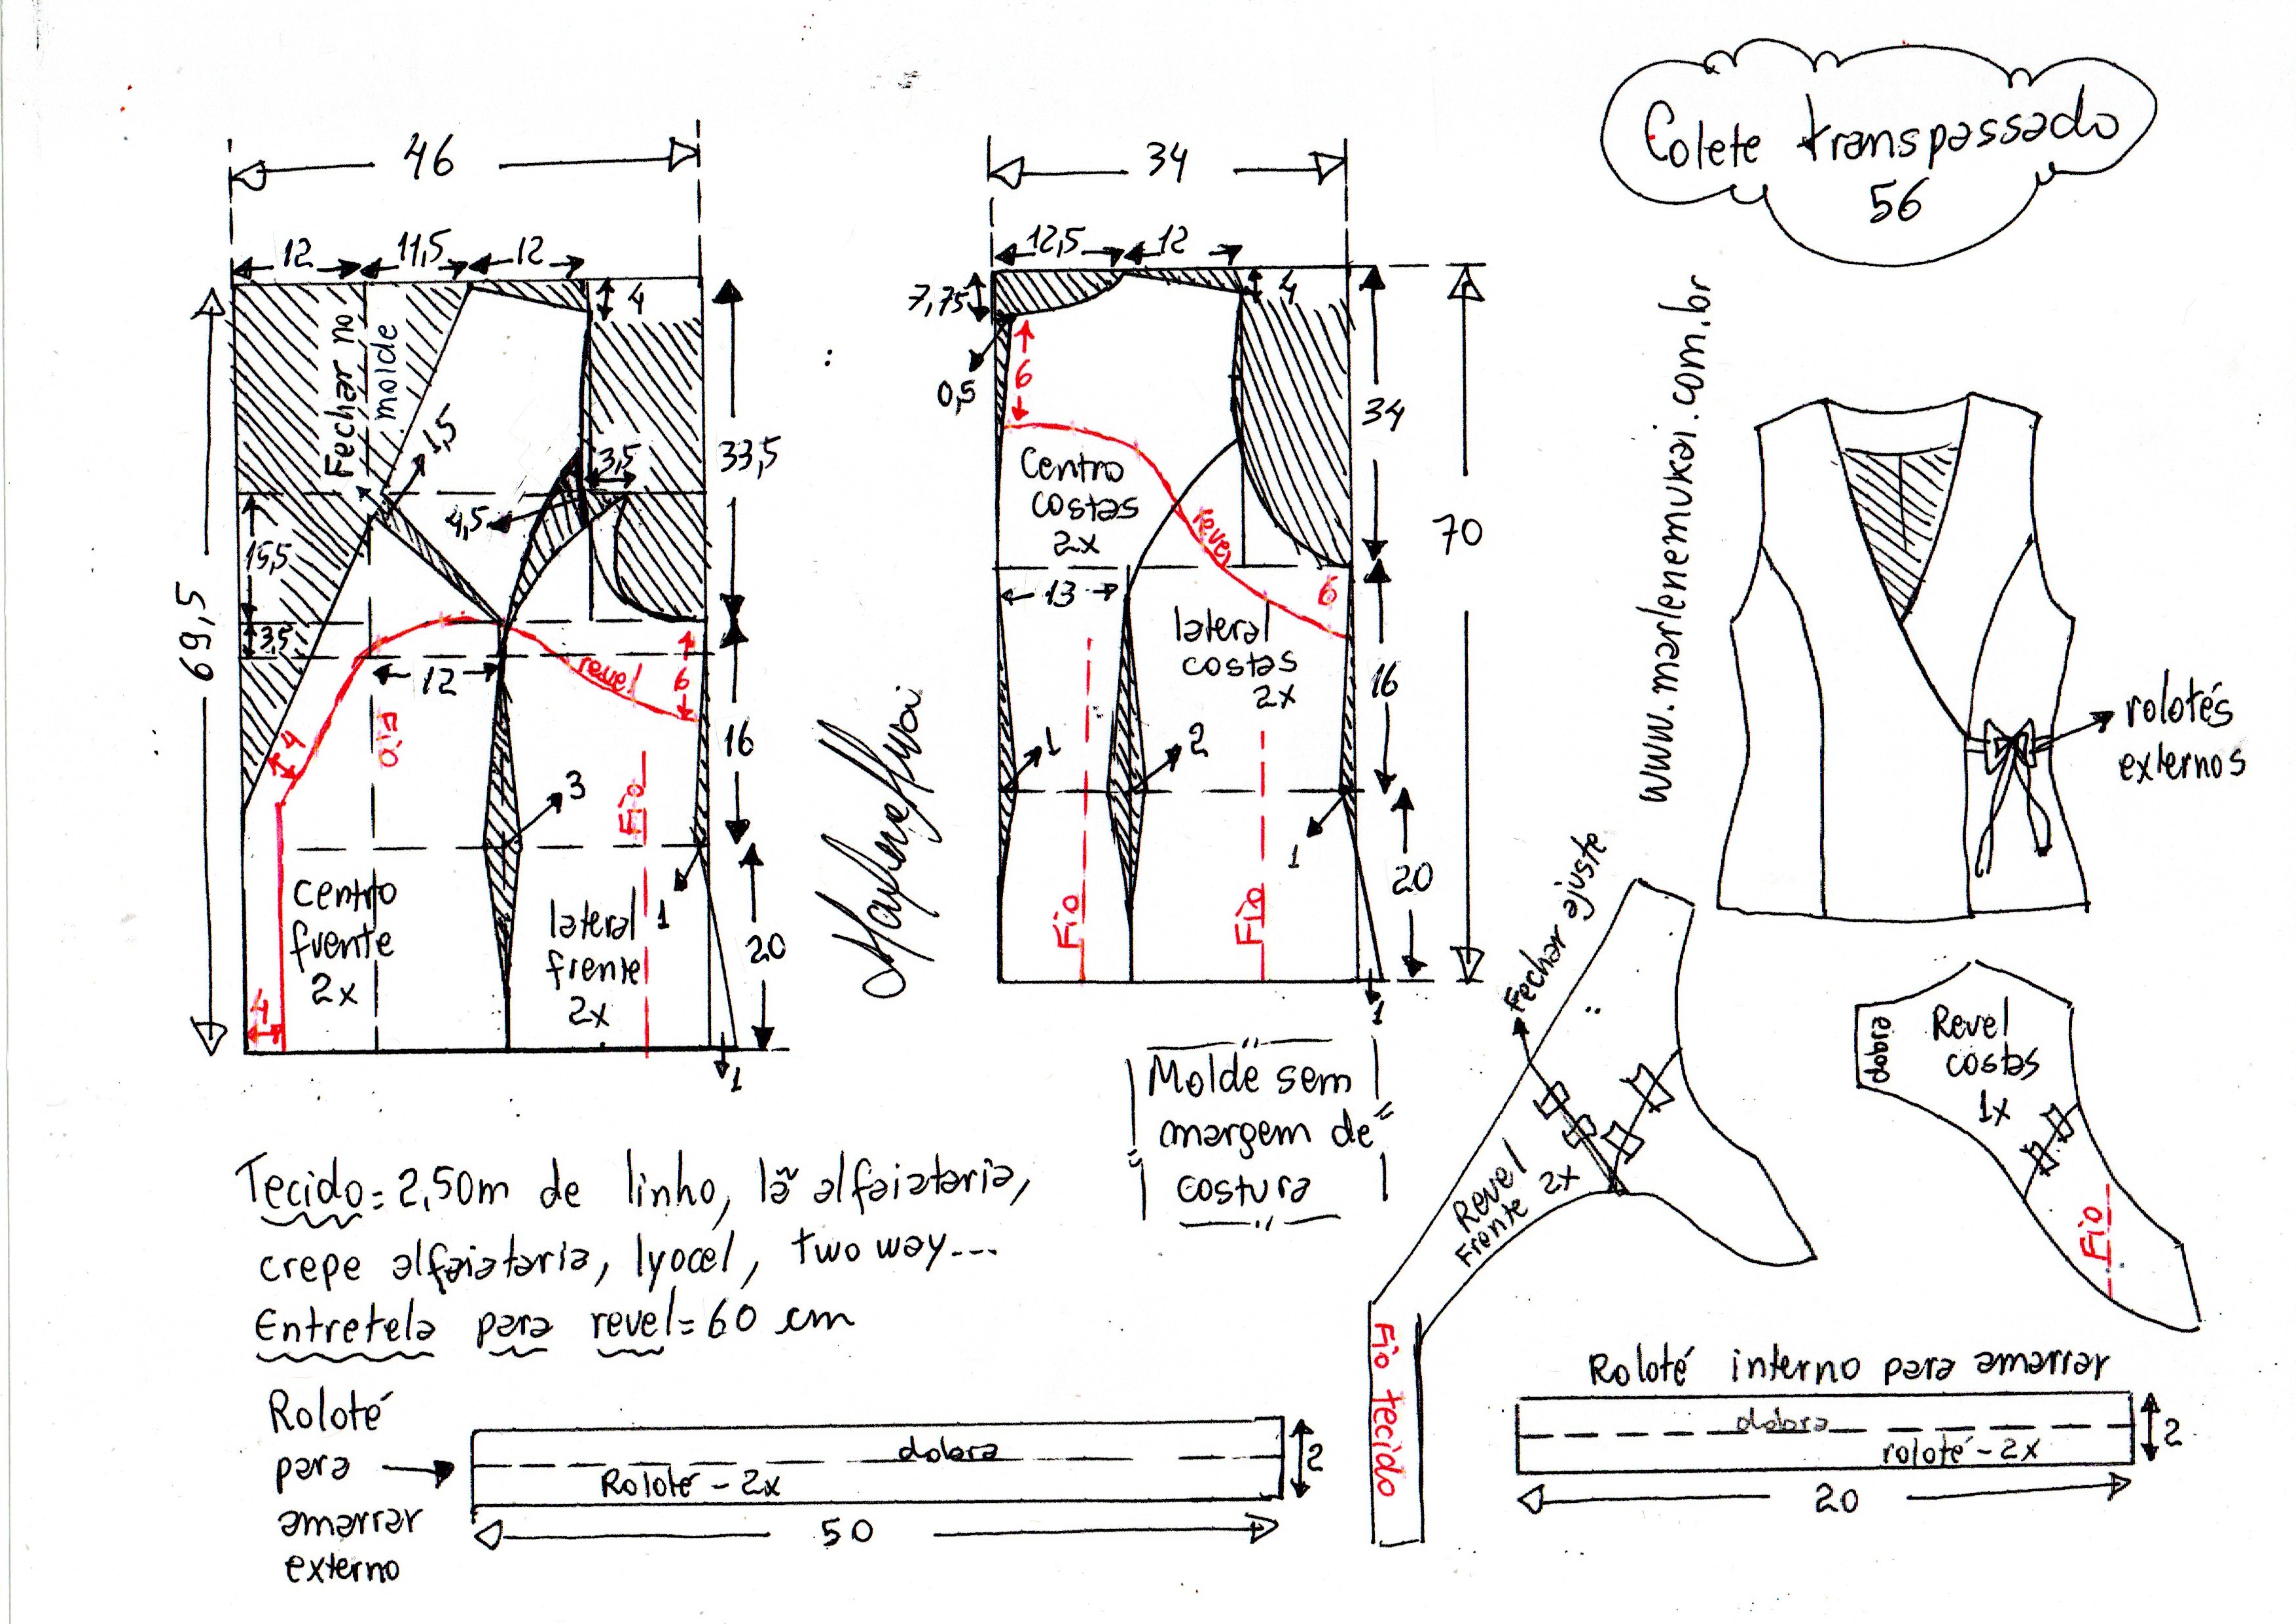 Colete transpassado
56
www.marlenemukai.com.br
46
12
11,5
12
4
Fechar no
molde
1,5
3,5
4,5
33,5
15,5
3,5
69,5
12
revel
6
4
Fio
16
3
Fio
1
Centro
frente
2x
lateral
frente
2x
20
4
1
34
12,5
12
7,75
4
0,5
6
34
Centro
costas
2x
revel
70
13
6
lateral
costas
2x
16
1
2
1
Fio
Fio
20
1
rolotés
externos
Molde sem
margem de
costura
Fechar ajuste
Revel
Frente
2x
Fio tecido
dobra
Revel
costas
1x
Fio
Tecido = 2,50m de linho, lã alfaiataria,
crepe alfaiataria, lyocel, two way...
Entretela para revel = 60 cm
Roloté
para
amarrar
externo
dobra
Roloté - 2x
2
50
Roloté interno para amarrar
dobra
roloté - 2x
2
20